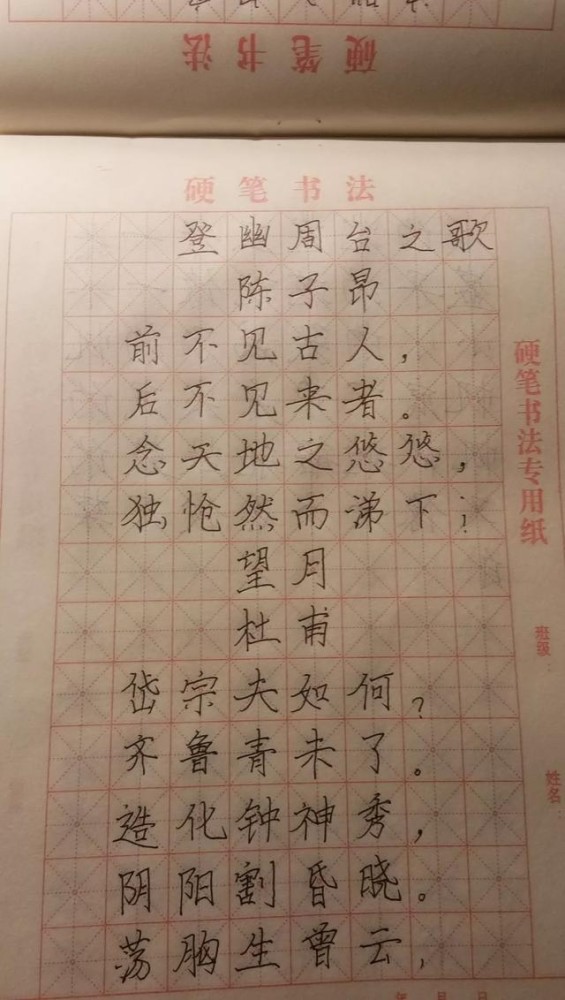 硬笔书法
硬笔书法
登幽周台之歌
陈子昂
前不见古人，
后不见来者。
念天地之悠悠，
独怆然而涕下；
望月
杜甫
岱宗夫如何？
齐鲁青未了。
造化钟神秀，
阴阳割昏晓。
荡胸生曾云，
硬笔书法专用纸
班级：
姓名：
年 月 日